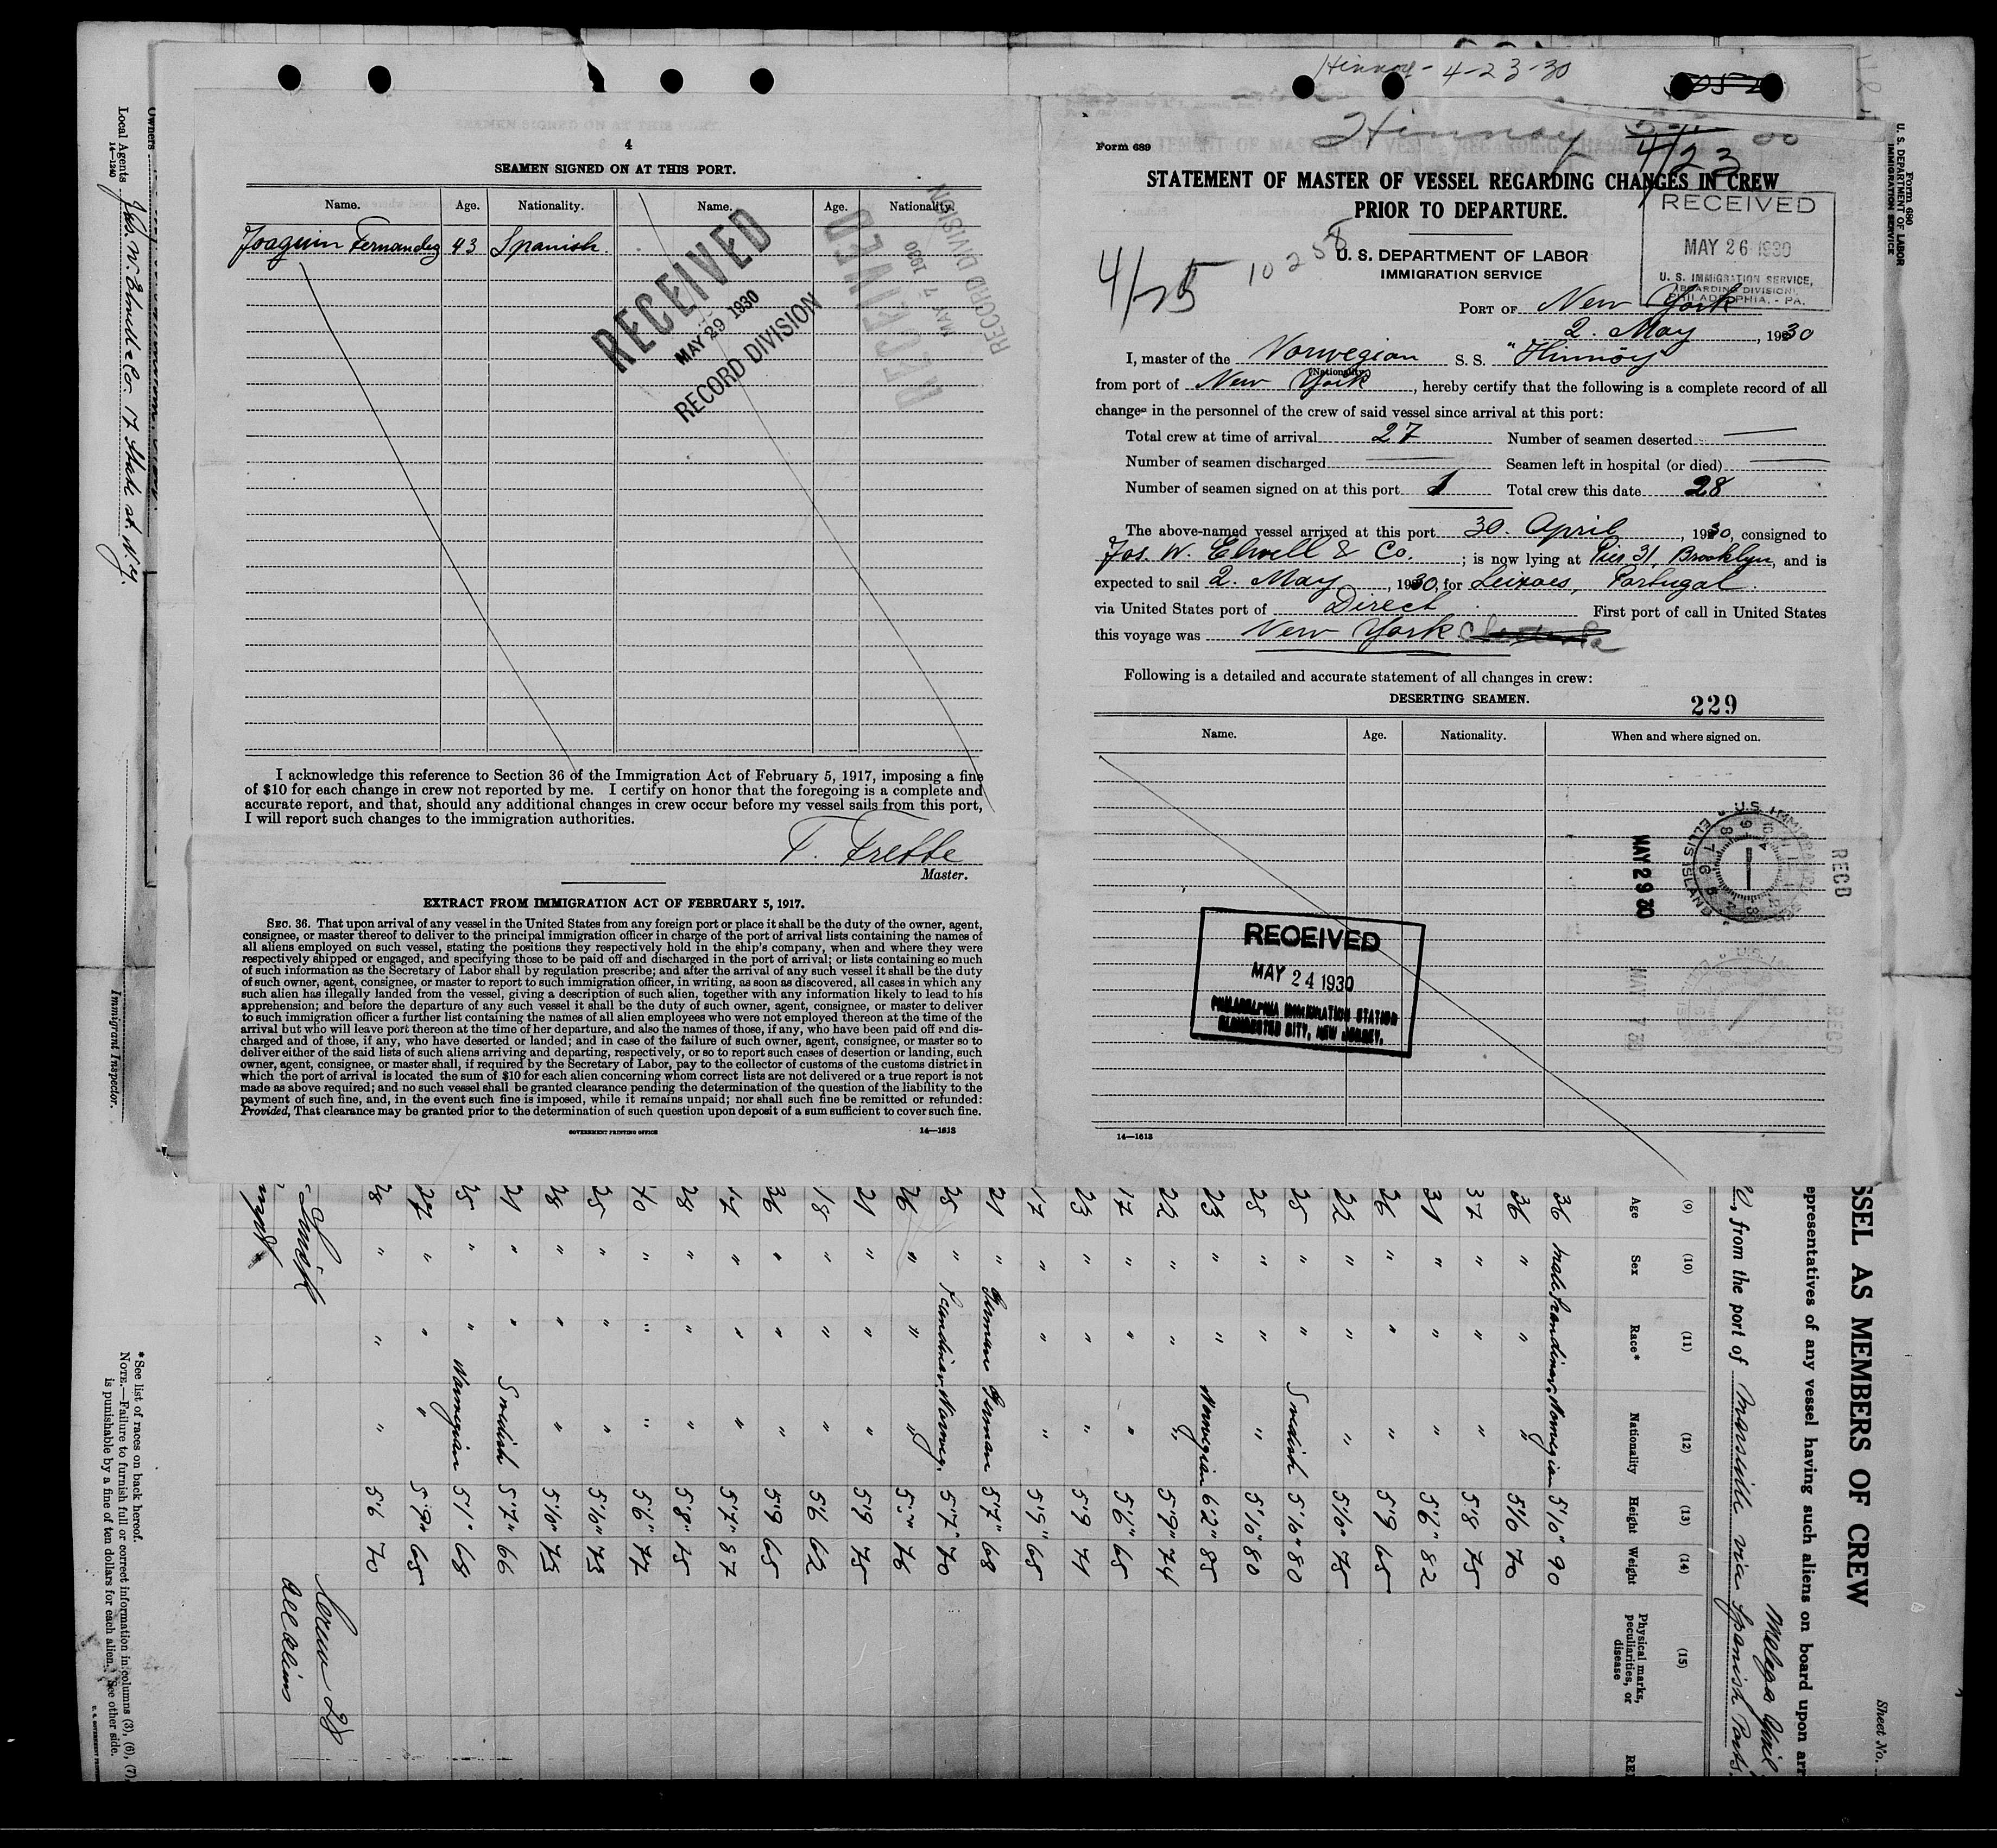 Hinnoy - 4-23-30
Hinnoy
4/23
4
SEAMEN SIGNED ON AT THIS PORT.
Name. Age. Nationality. Name. Age. Nationality.
Joaquin Fernandez 43 Spanish.
RECEIVED
MAY 29 1930
RECORD DIVISION
RECEIVED
MAY 7 1930
RECORD DIVISION
I acknowledge this reference to Section 36 of the Immigration Act of February 5, 1917, imposing a fine
of $10 for each change in crew not reported by me. I certify on honor that the foregoing is a complete and
accurate report, and that, should any additional changes in crew occur before my vessel sails from this port,
I will report such changes to the immigration authorities.
Master.
EXTRACT FROM IMMIGRATION ACT OF FEBRUARY 5, 1917.
SEC. 36. That upon arrival of any vessel in the United States from any foreign port or place it shall be the duty of the owner, agent,
consignee, or master thereof to deliver to the principal immigration officer in charge of the port of arrival lists containing the names of
all aliens employed on such vessel, stating the positions they respectively hold in the ship's company, when and where they were
respectively shipped or engaged, and specifying those to be paid off and discharged in the port of arrival; or lists containing so much
of such information as the Secretary of Labor shall by regulation prescribe; and after the arrival of any such vessel it shall be the duty
of such owner, agent, consignee, or master to report to such immigration officer, in writing, as soon as discovered, all cases in which any
such alien has illegally landed from the vessel, giving a description of such alien, together with any information likely to lead to his
apprehension; and before the departure of any such vessel it shall be the duty of such owner, agent, consignee, or master to deliver
to such immigration officer a further list containing the names of all alien employees who were not employed thereon at the time of the
arrival but who will leave port thereon at the time of her departure, and also the names of those, if any, who have been paid off and dis-
charged and of those, if any, who have deserted or landed; and in case of the failure of such owner, agent, consignee, or master so to
deliver either of the said lists of such aliens arriving and departing, respectively, or so to report such cases of desertion or landing, such
owner, agent, consignee, or master shall, if required by the Secretary of Labor, pay to the collector of customs of the customs district in
which the port of arrival is located the sum of $10 for each alien concerning whom correct lists are not delivered or a true report is not
made as above required; and no such vessel shall be granted clearance pending the determination of the question of the liability to the
payment of such fine, and, in the event such fine is imposed, while it remains unpaid; nor shall such fine be remitted or refunded:
Provided, That clearance may be granted prior to the determination of such question upon deposit of a sum sufficient to cover such fine.
GOVERNMENT PRINTING OFFICE 14—1613
Form 689
STATEMENT OF MASTER OF VESSEL REGARDING CHANGES IN CREW
PRIOR TO DEPARTURE.
RECEIVED
MAY 26 1930
U. S. IMMIGRATION SERVICE,
PHILADELPHIA, - PA.
4/25
10258
U. S. DEPARTMENT OF LABOR
IMMIGRATION SERVICE
PORT OF New York
2. May, 1930
I, master of the Norwegian S. S. "Hinnöy"
(Nationality)
from port of New York, hereby certify that the following is a complete record of all
change in the personnel of the crew of said vessel since arrival at this port:
Total crew at time of arrival 27 Number of seamen deserted —
Number of seamen discharged — Seamen left in hospital (or died) —
Number of seamen signed on at this port 1 Total crew this date 28
The above-named vessel arrived at this port 30. April, 1930, consigned to
Jos. W. Elwell & Co.; is now lying at Pier 31, Brooklyn, and is
expected to sail 2. May, 1930, for Leixoes, Portugal.
via United States port of Direct. First port of call in United States
this voyage was New York
Following is a detailed and accurate statement of all changes in crew:
DESERTING SEAMEN. 229
Name. Age. Nationality. When and where signed on.
U.S. IMMIGRATION
ELLIS ISLAND
MAY 29 30
RECD
MAY 7 30
RECD
RECEIVED
MAY 24 1930
PHILADELPHIA IMMIGRATION STATION
GLOUCESTER CITY, NEW JERSEY.
14—1613
Form 680
U. S. DEPARTMENT OF LABOR
IMMIGRATION SERVICE
Sheet No.
SSEL AS MEMBERS OF CREW
epresentatives of any vessel having such aliens on board upon arr
from the port of Marseille via Spanish Ports.
Malaga April
(9) (10) (11) (12) (13) (14) (15)
Age Sex Race* Nationality Height Weight Physical marks, peculiarities, or disease
36 male Scandinav. Norwegian 5'10" 90
36 " " " 5'6 70
37 " " " 5'8 75
31 " " " 5'6" 82
26 " " " 5'9 65
22 " " " 5'10" 75
25 " " Swedish 5'10" 80
25 " " " 5'10" 80
23 " " Norwegian 6'2" 85
22 " " " 5'9" 74
17 " " " 5'6" 65
23 " " " 5'9 71
17 " " " 5'9" 65
21 " German German 5'7" 68
25 " Scandinav. Norweg. 5'7" 70
26 " " " 76
21 " " " 5'9 75
18 " " " 5'6 62
36 " " " 5'9 65
" " " 5'7" 87
28 " " " 5'8" 75
40 " " " 5'6" 77
25 " " " 5'10" 73
28 " " " 5'10" 73
21 " " Swedish 5'7" 66
25 " " Norwegian 5'1" 68
27 " " " 5'9" 65
28 " " " 5'6 70
Crew 28
all aliens
* See list of races on back hereof.
NOTE.—Failure to furnish full or correct information in columns (3), (6), (7),
is punishable by a fine of ten dollars for each alien. See other side.
Owners
Local Agents Jos. W. Elwell & Co 17 State st. N.Y.
14—1240
Immigrant Inspector.